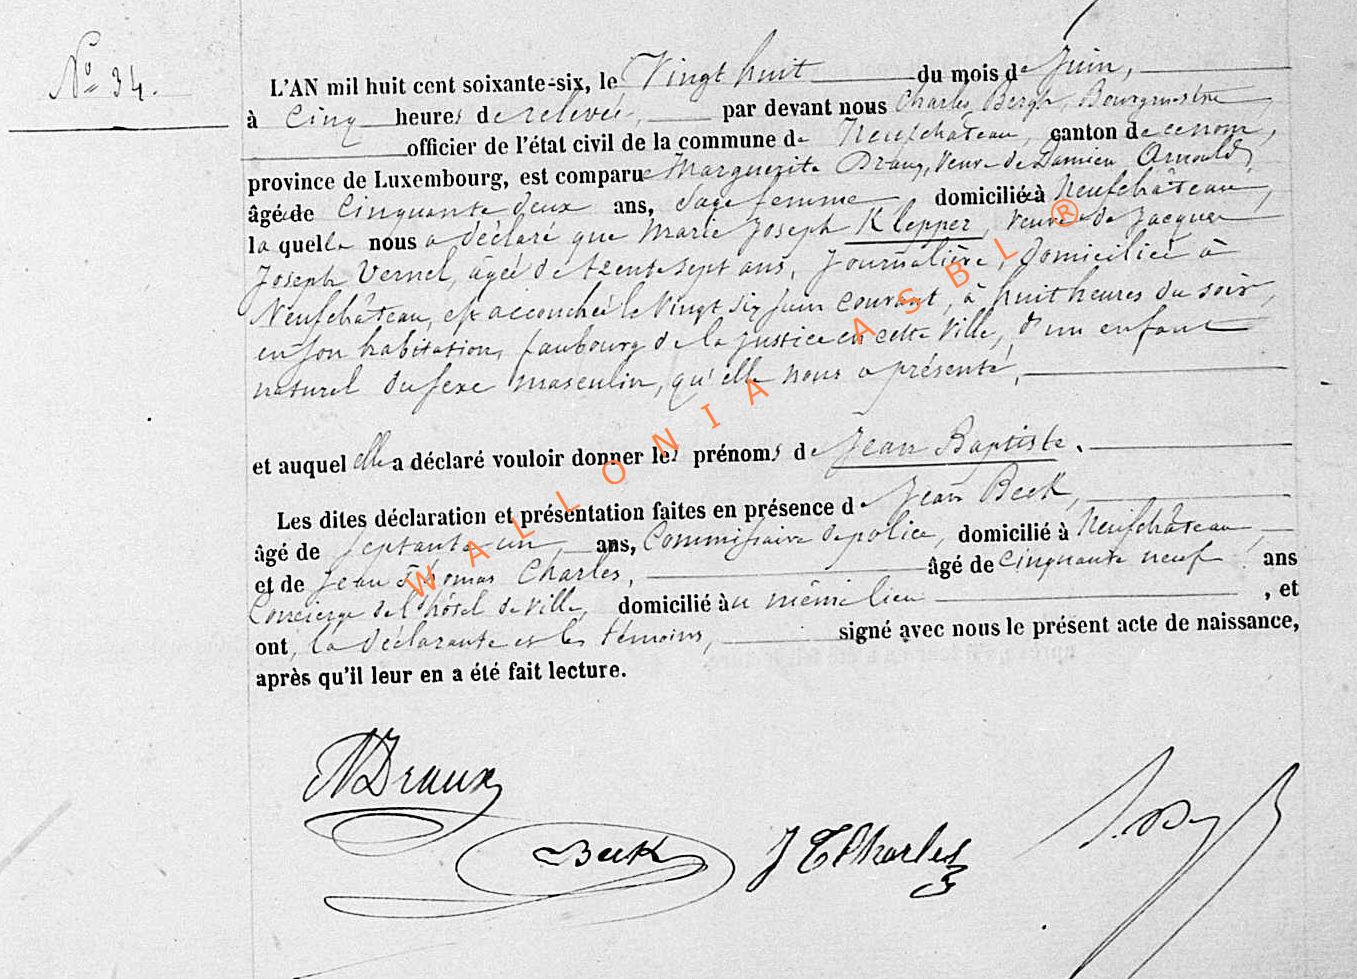 N° 34.
L'AN mil huit cent soixante-six, le Vingt huit du mois de Juin,
à Cinq heures de relevée, par devant nous Charles Bergh, Bourgmestre
officier de l'état civil de la commune de Neufchâteau, canton de ce nom,
province de Luxembourg, est comparue Marguerite Draux, Veuve de Damien Arnould,
âgée de Cinquante deux ans, Sage femme domiciliée à Neufchâteau,
laquelle nous a déclaré que Marie Joseph Klepper, Veuve de Jacques
Joseph Vernel, âgée de trente sept ans, Journalière, domiciliée à
Neufchâteau, est accouchée le Vingt six Juin courant, à huit heures du soir,
en son habitation, faubourg de la Justice en cette Ville, d'un enfant
naturel du sexe masculin, qu'elle nous a présenté,
et auquel elle a déclaré vouloir donner les prénoms de Jean Baptiste.
Les dites déclaration et présentation faites en présence de Jean Beck,
âgé de septante un ans, Commissaire de police, domicilié à Neufchâteau,
et de Jean Thomas Charles, âgé de cinquante neuf ans
Concierge de l'hôtel de ville, domicilié au même lieu, et
ont, la déclarante et les témoins, signé avec nous le présent acte de naissance,
après qu'il leur en a été fait lecture.
WALLONIA ASBL ®
MDraux
Beck
J T Charles